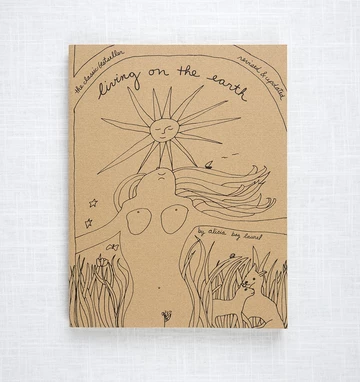 the classic bestseller
revised & updated
living on the earth
by alicia bay laurel